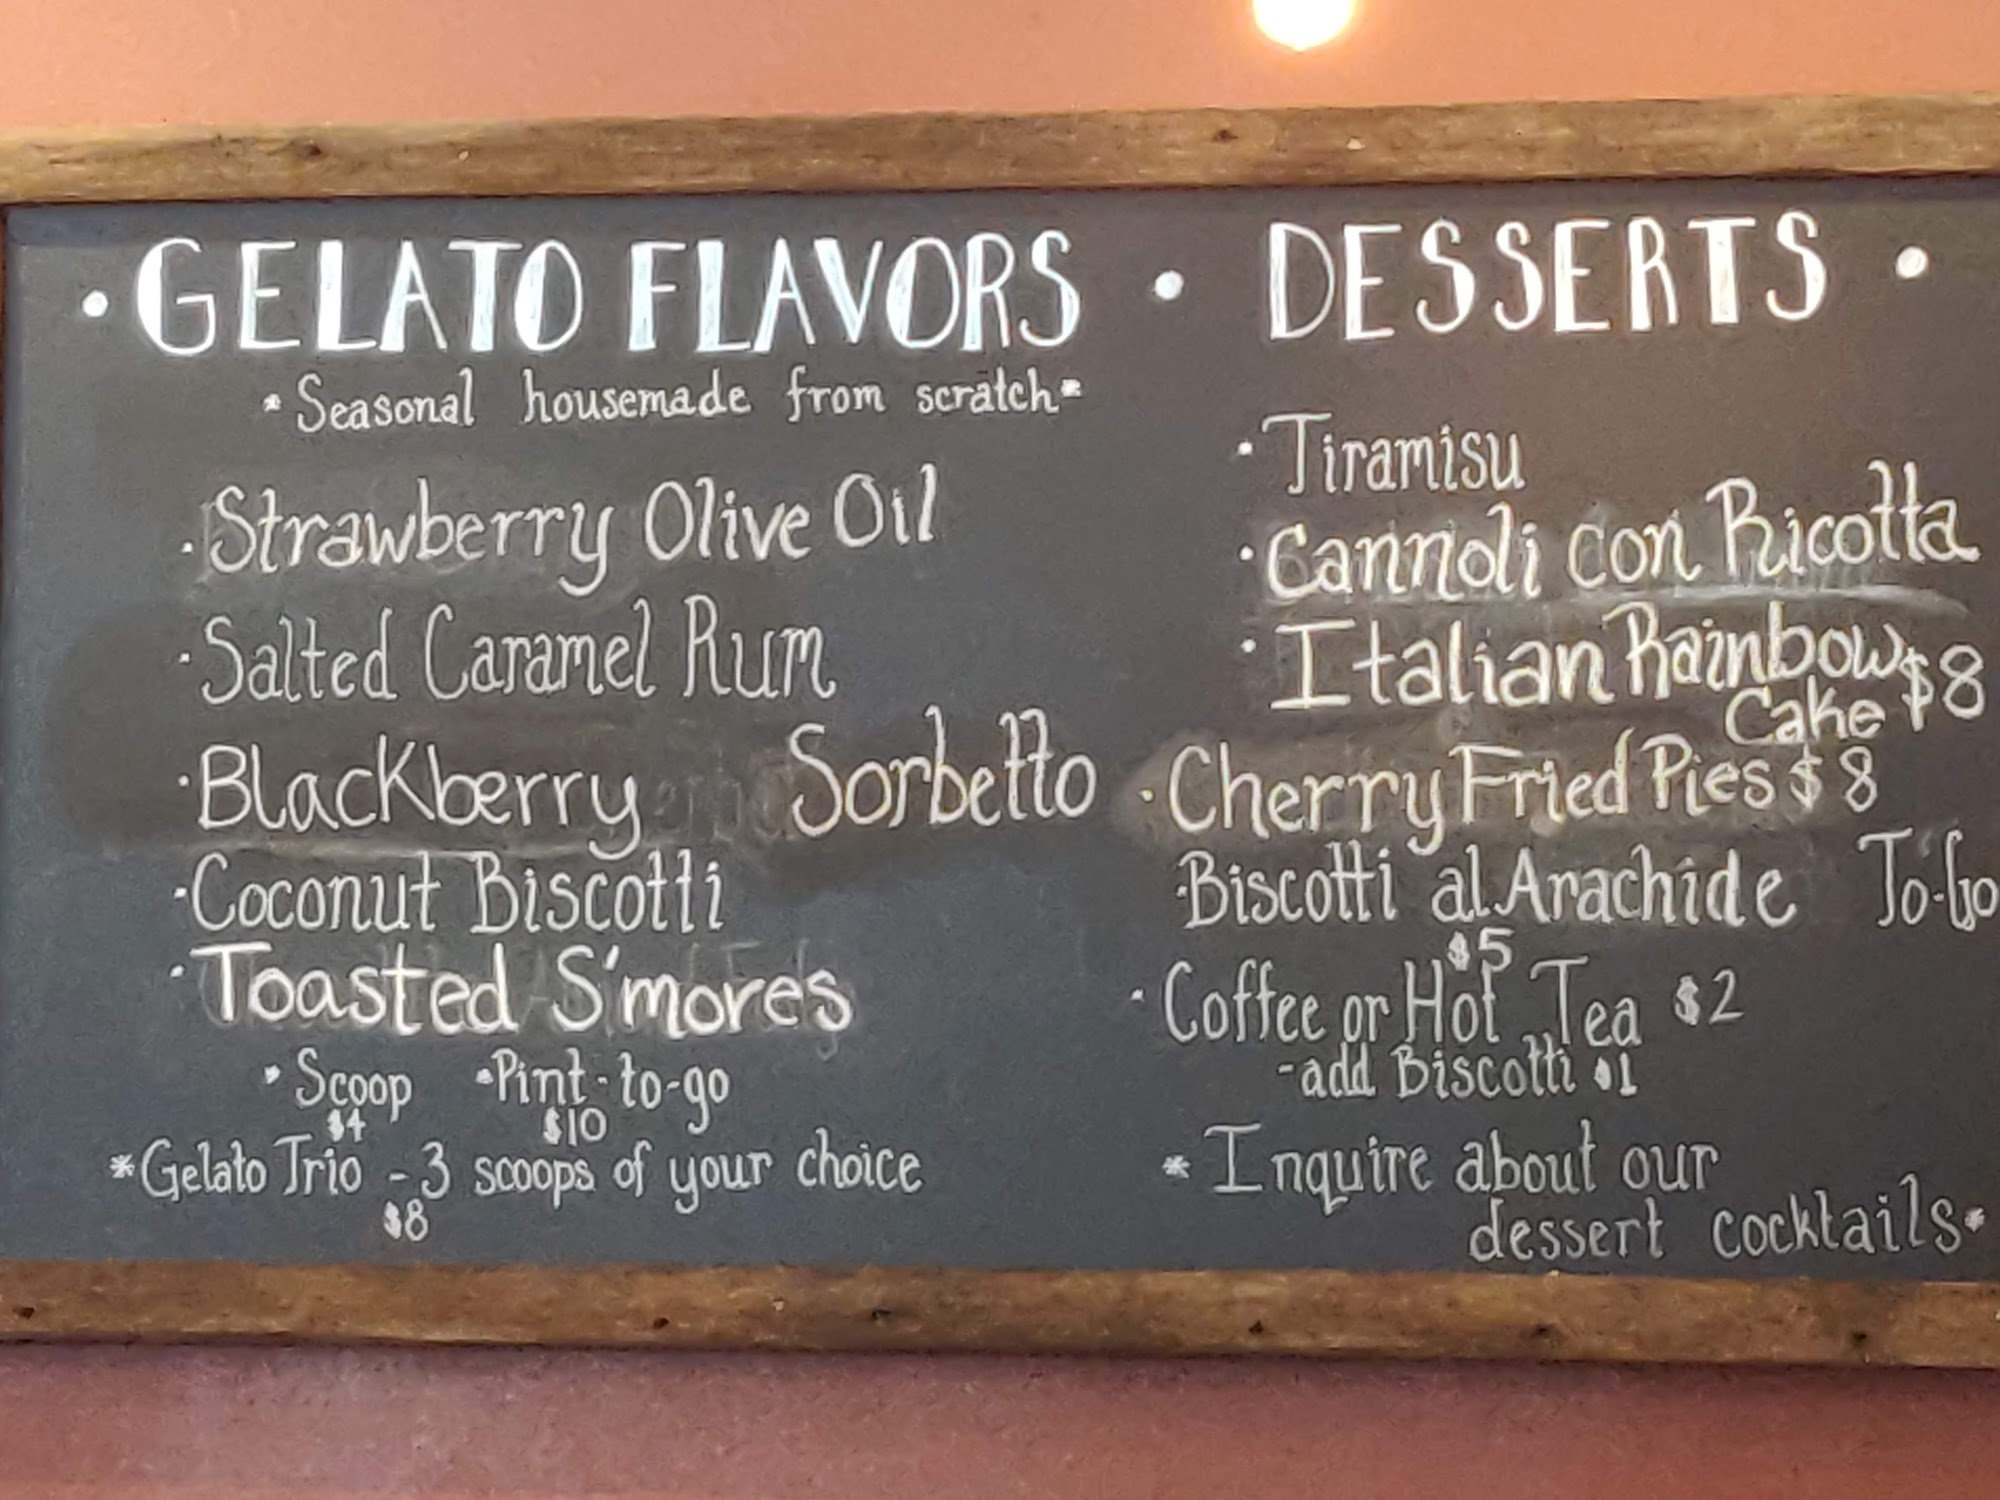 • GELATO FLAVORS •
*Seasonal housemade from scratch*
• Strawberry Olive Oil
• Salted Caramel Rum
• Blackberry Sorbetto
• Coconut Biscotti
• Toasted S'mores
• Scoop • Pint-to-go
$4 $10
*Gelato Trio - 3 scoops of your choice
$8
DESSERTS •
• Tiramisu
• Cannoli con Ricotta
• Italian Rainbow
Cake $8
• Cherry Fried Pies $8
• Biscotti al Arachide To-Go
$5
• Coffee or Hot Tea $2
- add Biscotti $1
* Inquire about our
dessert cocktails*